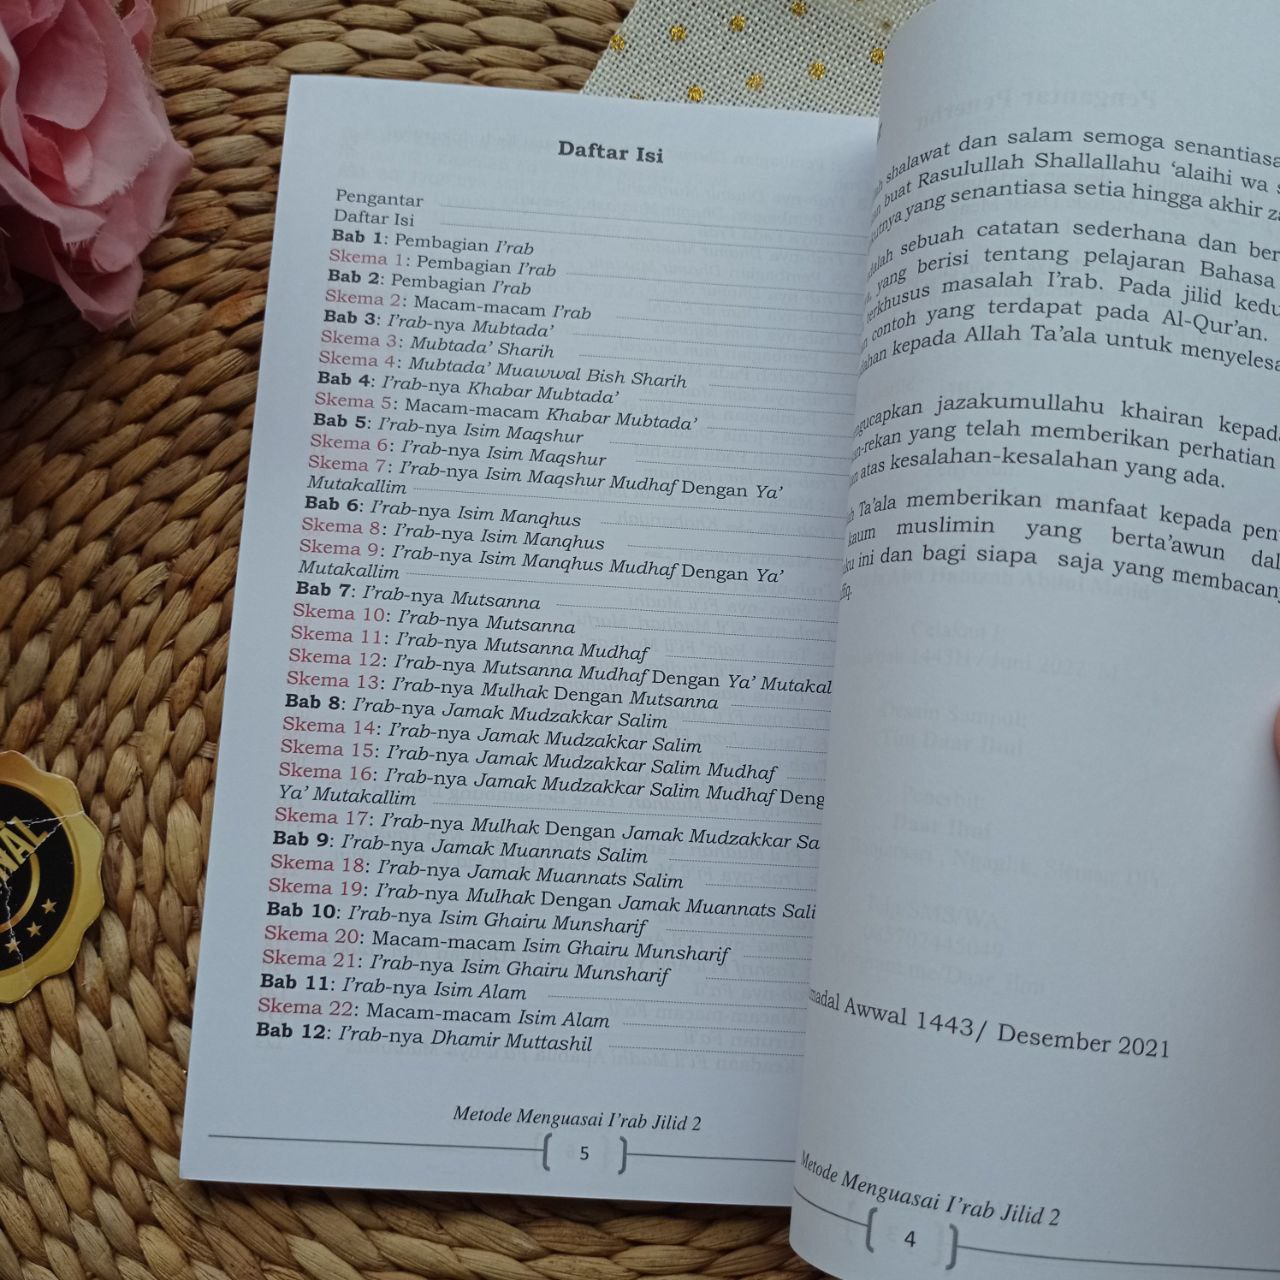 Daftar Isi
Pengantar
Daftar Isi
Bab 1: Pembagian I'rab
Skema 1: Pembagian I'rab
Bab 2: Pembagian I'rab
Skema 2: Macam-macam I'rab
Bab 3: I'rab-nya Mubtada'
Skema 3: Mubtada' Sharih
Skema 4: Mubtada' Muawwal Bish Sharih
Bab 4: I'rab-nya Khabar Mubtada'
Skema 5: Macam-macam Khabar Mubtada'
Bab 5: I'rab-nya Isim Maqshur
Skema 6: I'rab-nya Isim Maqshur
Skema 7: I'rab-nya Isim Maqshur Mudhaf Dengan Ya'
Mutakallim
Bab 6: I'rab-nya Isim Manqhus
Skema 8: I'rab-nya Isim Manqhus
Skema 9: I'rab-nya Isim Manqhus Mudhaf Dengan Ya'
Mutakallim
Bab 7: I'rab-nya Mutsanna
Skema 10: I'rab-nya Mutsanna
Skema 11: I'rab-nya Mutsanna Mudhaf
Skema 12: I'rab-nya Mutsanna Mudhaf Dengan Ya' Mutakal
Skema 13: I'rab-nya Mulhak Dengan Mutsanna
Bab 8: I'rab-nya Jamak Mudzakkar Salim
Skema 14: I'rab-nya Jamak Mudzakkar Salim
Skema 15: I'rab-nya Jamak Mudzakkar Salim Mudhaf
Skema 16: I'rab-nya Jamak Mudzakkar Salim Mudhaf Deng
Ya' Mutakallim
Skema 17: I'rab-nya Mulhak Dengan Jamak Mudzakkar Sa
Bab 9: I'rab-nya Jamak Muannats Salim
Skema 18: I'rab-nya Jamak Muannats Salim
Skema 19: I'rab-nya Mulhak Dengan Jamak Muannats Sali
Bab 10: I'rab-nya Isim Ghairu Munsharif
Skema 20: Macam-macam Isim Ghairu Munsharif
Skema 21: I'rab-nya Isim Ghairu Munsharif
Bab 11: I'rab-nya Isim Alam
Skema 22: Macam-macam Isim Alam
Bab 12: I'rab-nya Dhamir Muttashil
Metode Menguasai I'rab Jilid 2
5
shalawat dan salam semoga senantiasa
buat Rasulullah Shallallahu 'alaihi wa s
yang senantiasa setia hingga akhir za
sebuah catatan sederhana dan ber
yang berisi tentang pelajaran Bahasa
masalah I'rab. Pada jilid kedu
contoh yang terdapat pada Al-Qur'an.
kepada Allah Ta'ala untuk menyelesa
gucapkan jazakumullahu khairan kepada
n-rekan yang telah memberikan perhatian
atas kesalahan-kesalahan yang ada.
Ta'ala memberikan manfaat kepada pen
kaum muslimin yang berta'awun dal
ku ini dan bagi siapa saja yang membacany
madal Awwal 1443/ Desember 2021
Metode Menguasai I'rab Jilid 2
4